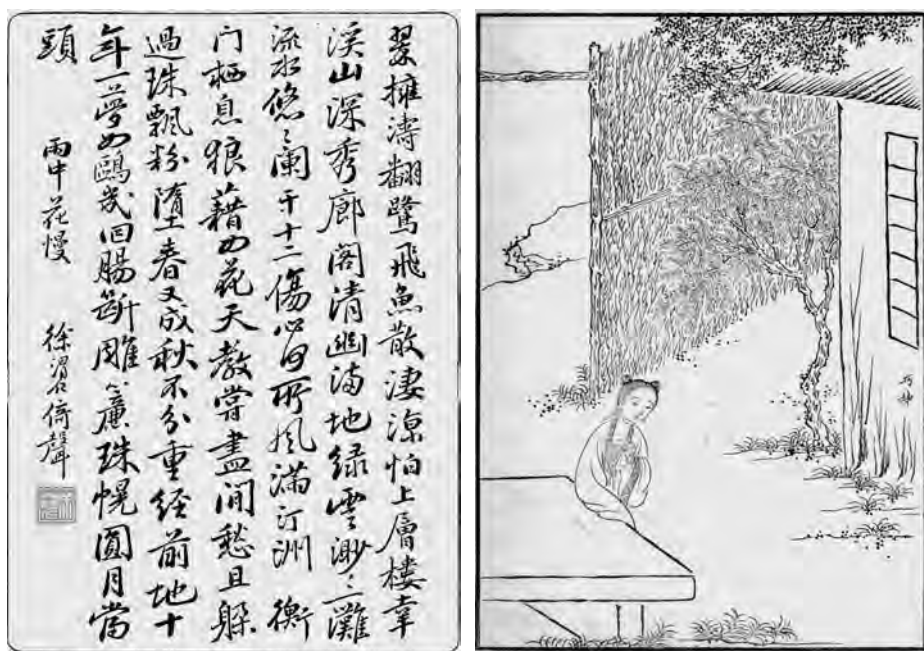 翠擁濤翻鷺飛魚散淒涼怕上層樓幸
溪山深秀廊閣清幽滿地綠雲渺〻一灘
流水悠〻闌干十二傷心何所風滿汀洲 衡
门栖息狼藉如花天教嘗盡閒愁且躲
過珠飄粉墮春又成秋不分重經前地十
年一夢如鷗幾回腸斷雕簾珠幌圓月當
頭
雨中花慢 徐渭仁倚聲
巧姊